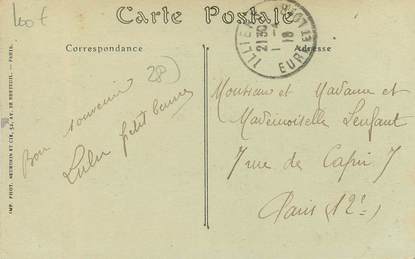 100 €
Carte Postale
Correspondance
Adresse
28)
ILLIERS
EURE
21 30
1 - 4
18
Bon souvenir
Lulu petit
Monsieur et Madame et
Mademoiselle Lenfant
7 rue de Capri 7
Paris (12e)
IMP. PHOT. NEURDEIN ET CIE, 52, AV. DE BRETEUIL. - PARIS.